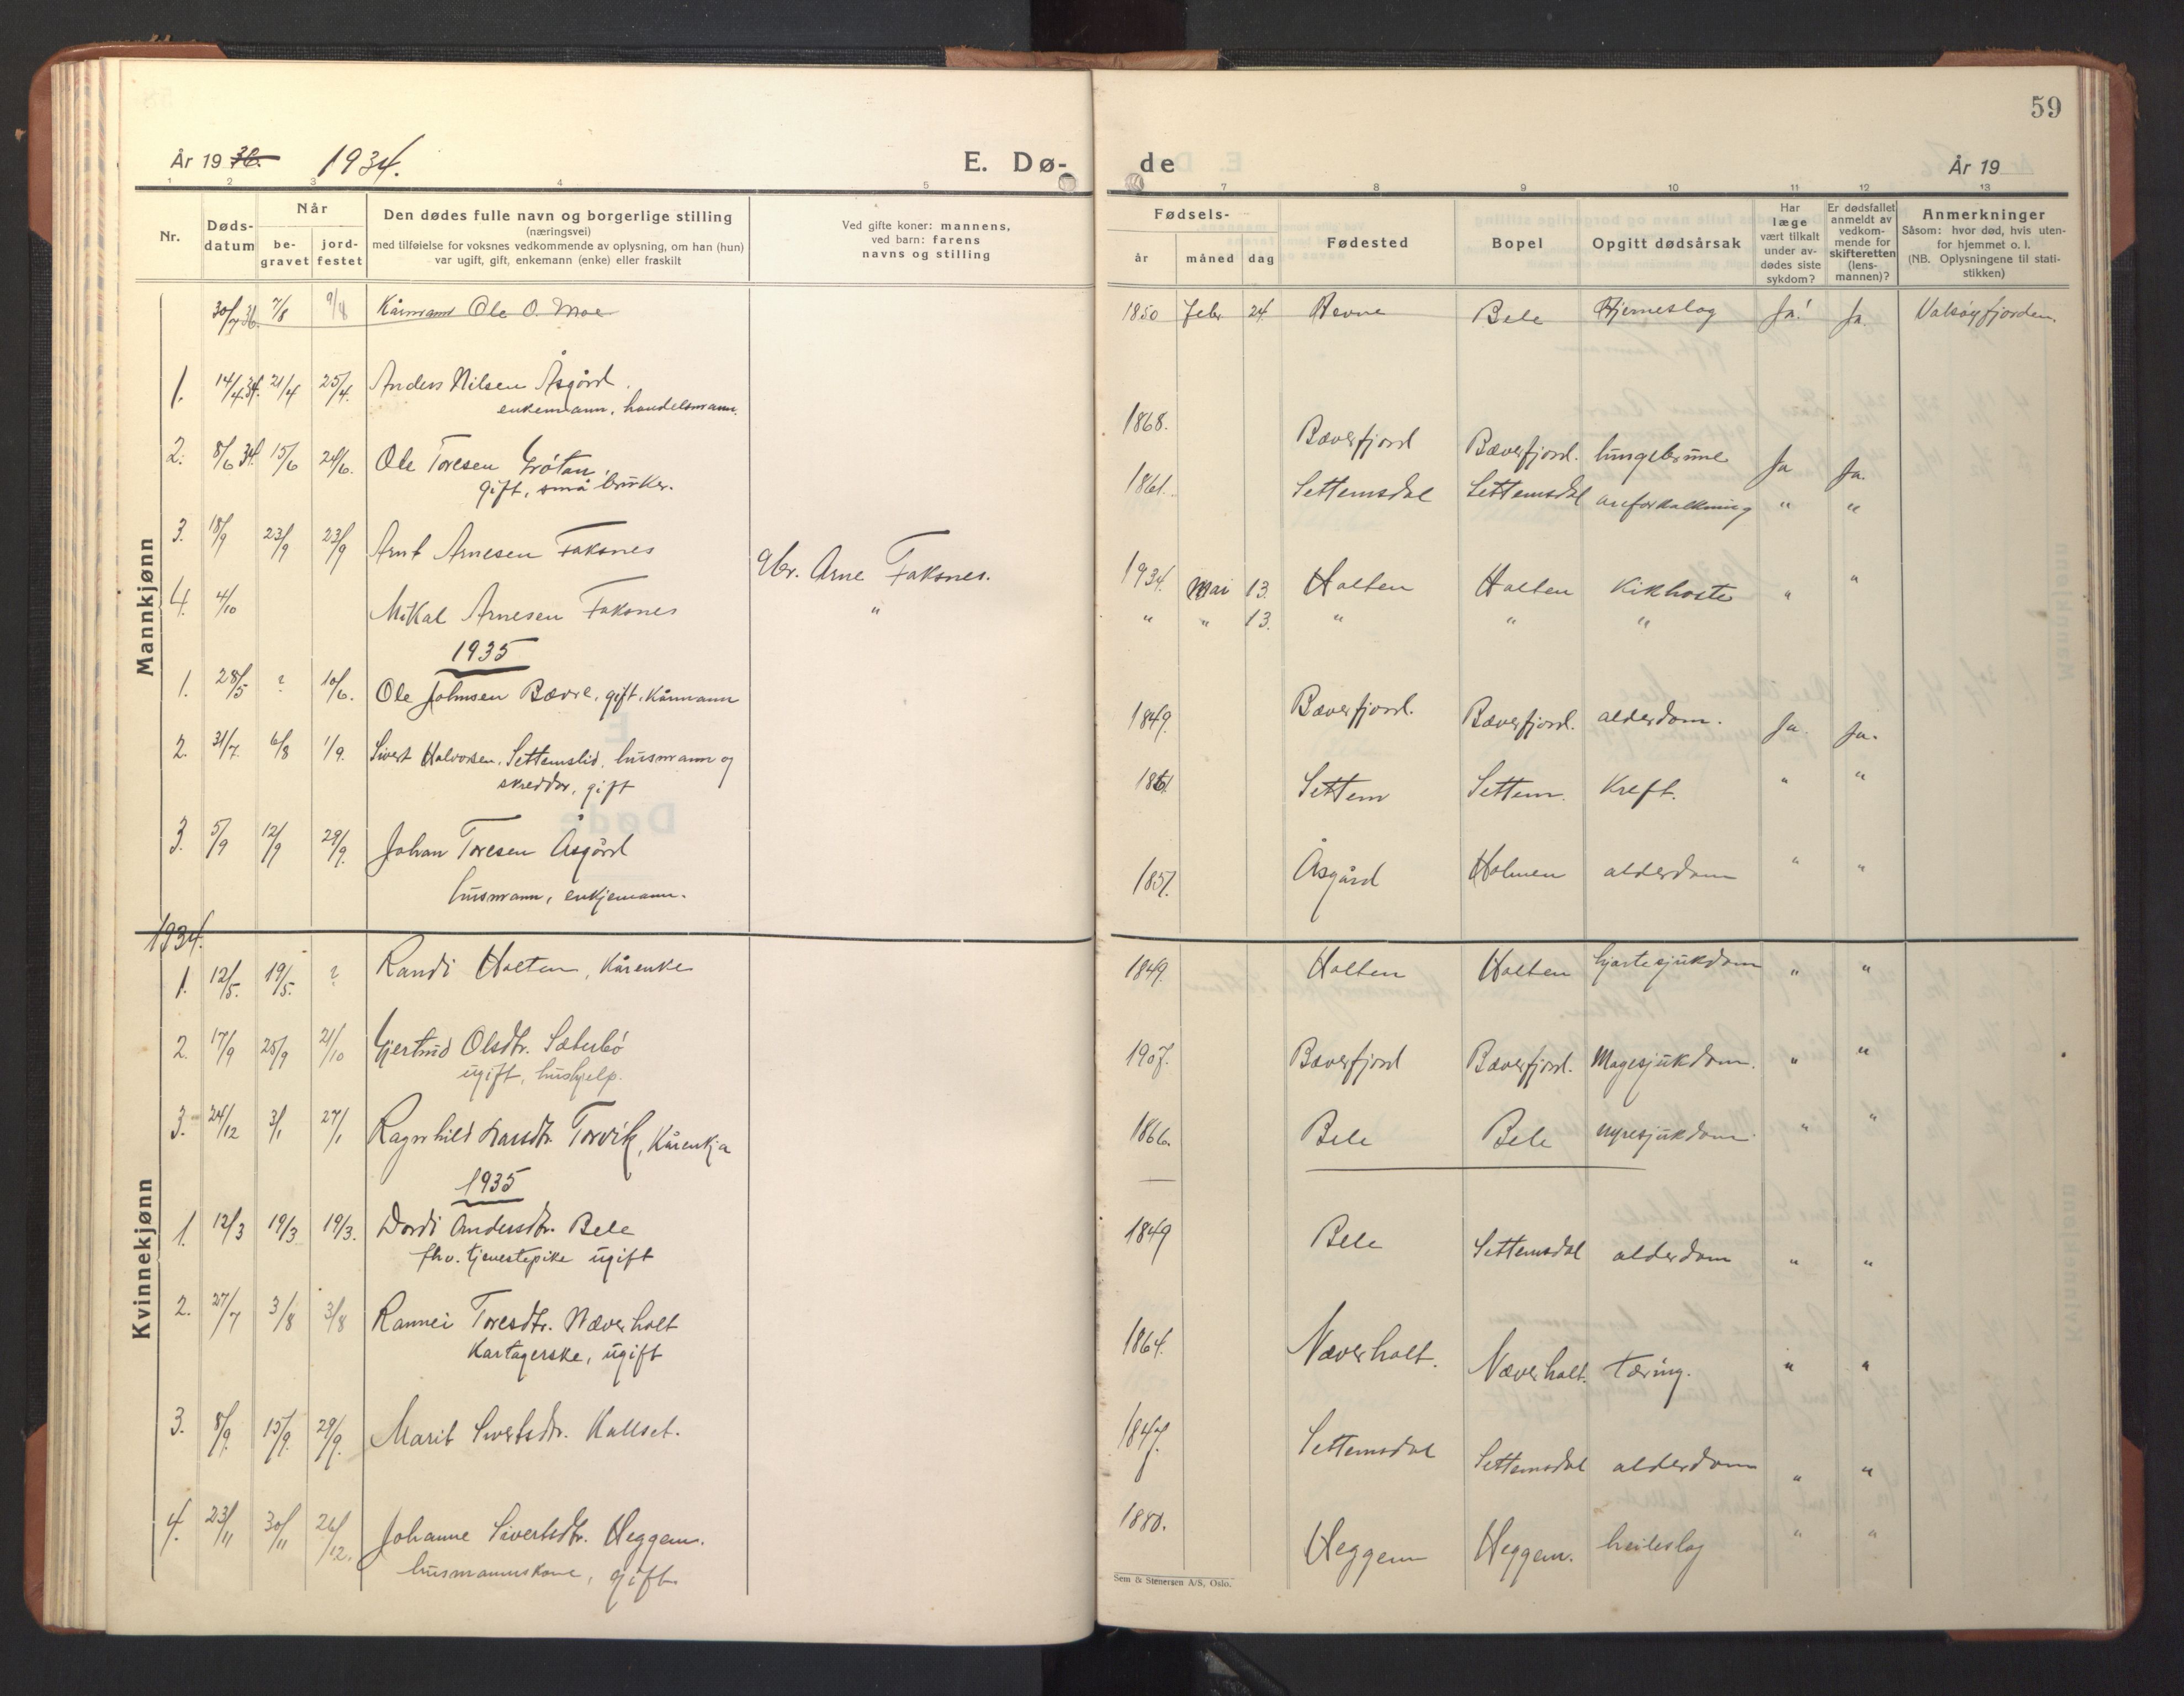 59
År 19 36. 1934. E. Dø- de År 19
1 2 3 4 5 7 8 9 10 11 12 13
Nr. Døds-datum Når be-gravet jord-festet
Den dødes fulle navn og borgerlige stilling
(næringsvei)
med tilføielse for voksnes vedkommende av oplysning, om han (hun)
var ugift, gift, enkemann (enke) eller fraskilt
Ved gifte koner: mannens,
ved barn: farens
navns og stilling
Fødsels-
år måned dag
Fødested
Bopel
Opgitt dødsårsak
Har læge vært tilkalt under av-dødes siste sykdom?
Er dødsfallet anmeldt av vedkom-mende for skifteretten (lens-mannen)?
Anmerkninger
Såsom: hvor død, hvis uten-
for hjemmet o. l.
(NB. Oplysningene til stati-
stikken)
Mannkjønn
30/7 36. 7/8 9/8 Kårmann Ole O. Moe 1850 Febr 24 Hevne Bele Hjerneslag Ja! Ja. Valsøyfjorden.
1. 14/4 34. 21/4 25/4. Anders Nilsen Åsgård. 1868. Bæverfjord Bæverfjord. lungebrune Ja Ja.
enkemann, handelsmann.
2. 8/6 34. 15/6 24/6. Ole Toresen Grótan, 1861. Settemsdal Settemsdal areforkalkning " "
gift, små bruker.
3. 18/9 23/9 23/9 Arnt Arnesen Faksnes Gbr. Arne Faksnes. 1934. Mai 13. Holten Holten Kikhoste " "
4. 4/10 Mikal Arnesen Faksnes " " " 13. " " "
1935
1. 28/5 ? 10/6. Ole Johnsen Bævre, gift, Kårmann 1849. Bæverfjord. Bæverfjord. alderdom. Ja. Ja.
2. 31/7. 6/8 1/9. Sivert Halvorsen, Settemslid, husmann og 1861. Settem Settem. Kreft. " "
skreddar, gift
3. 5/9 12/9 29/9. Johan Toresen Åsgård 1857. Åsgård Holmen alderdom " "
husmann, enkjemann.
Kvinnekjønn
1934.
1. 12/5. 19/5. ? Randi Holten, Kårenke 1849. Holten Holten hjartesjukdom " "
2. 17/9 25/9 21/10 Gjertrud Olsdtr. Sæterbø 1907. Bæverfjord Bæverfjord. Magesjukdom. " "
ugift, hushjelp.
3. 24/12 3/1 27/1 Ragnhild Larsdtr. Torvik, Kårenkja 1866. Bele Bele nyresjukdom " "
1935
1. 12/3 19/3 19/3. Dordi Andersdtr. Bele 1849 Bele Settemsdal alderdom " "
fhv. tjenestepike ugift
2. 27/7 3/8 3/8 Rannei Toresdtr. Næverholt 1864. Næverholt. Næverholt. Tæring. " "
Kårtagerske, ugift
3. 8/9. 15/9. 29/9. Marit Sivertsdtr. Kallset. 1847. Settemsdal Settemsdal alderdom " "
4. 23/11 30/11 26/12. Johanne Sivertsdtr. Heggem. 1880. Heggem Heggem. heileslag " "
husmannskone, gift.
Sem & Stenersen A/S, Oslo.